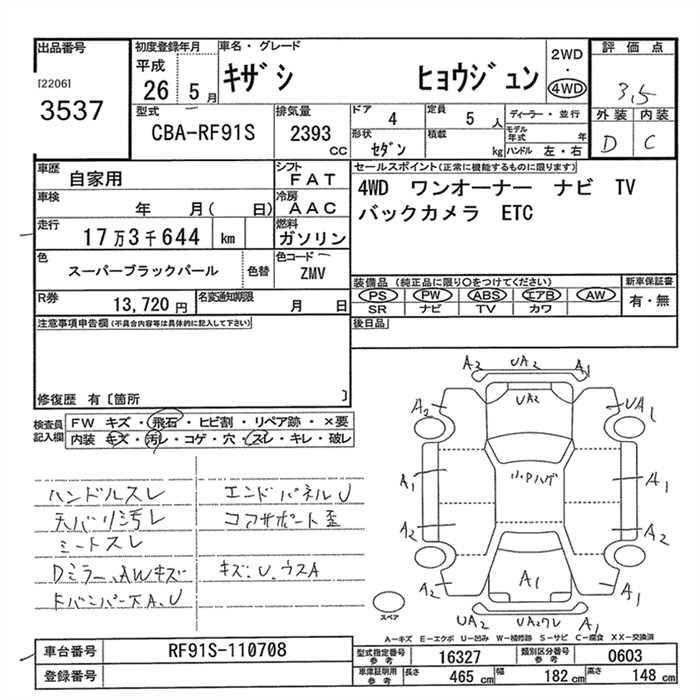 出品番号
[2206]
3537
初度登録年月
平成
26 5月
車名・グレード
キザシ ヒョウジュン
2WD
・
4WD
評価点
3.5
外装 内装
D C
型式
CBA-RF91S
排気量
2393
CC
ドア
4
定員
5 人
ディーラー・並行
形状
セダン
積載
kg
モデル年式 年
ハンドル 左・右
車歴
自家用
シフト
FAT
車検
年 月( 日)
冷房
AAC
走行
17万3千644 km
燃料
ガソリン
色
スーパーブラックパール
色替
色コード
ZMV
R券
13,720円
名変通知期限
月 日
セールスポイント(正常に機能するものに限ります)
4WD ワンオーナー ナビ TV
バックカメラ ETC
装備品 (純正品に限り○をつけてください)
PS PW ABS エアB AW
SR ナビ TV カワ
新車保証書
有・無
後日品
注意事項申告欄(不具合内容等は具体的に記入して下さい)
修復歴 有〔箇所 〕
検査員記入欄
FW キズ・飛石・ヒビ割・リペア跡・×要
内装 キズ・汚レ・コゲ・穴・スレ・キレ・破レ
ハンドルスレ
天バリ汚レ
シートスレ
Dミラー、AWキズ
Fバンパー下A、U
エンドパネルU
コアサポート歪
キズ・U、ウスA
A2 UA2 A1
UA2
A2 UA1
小Pハゲ
A1 A1
A2 A2
A2 A1 A1
UA2 UA2ワレ A1
スペア
A-キズ E-エクボ U-凹み W-補修跡 S-サビ C-腐食 XX-交換済
車台番号
RF91S-110708
登録番号
型式指定番号
参考
16327
類別区分番号
参考
0603
車庫証明用
参考
長さ
465 cm
幅
182 cm
高さ
148 cm